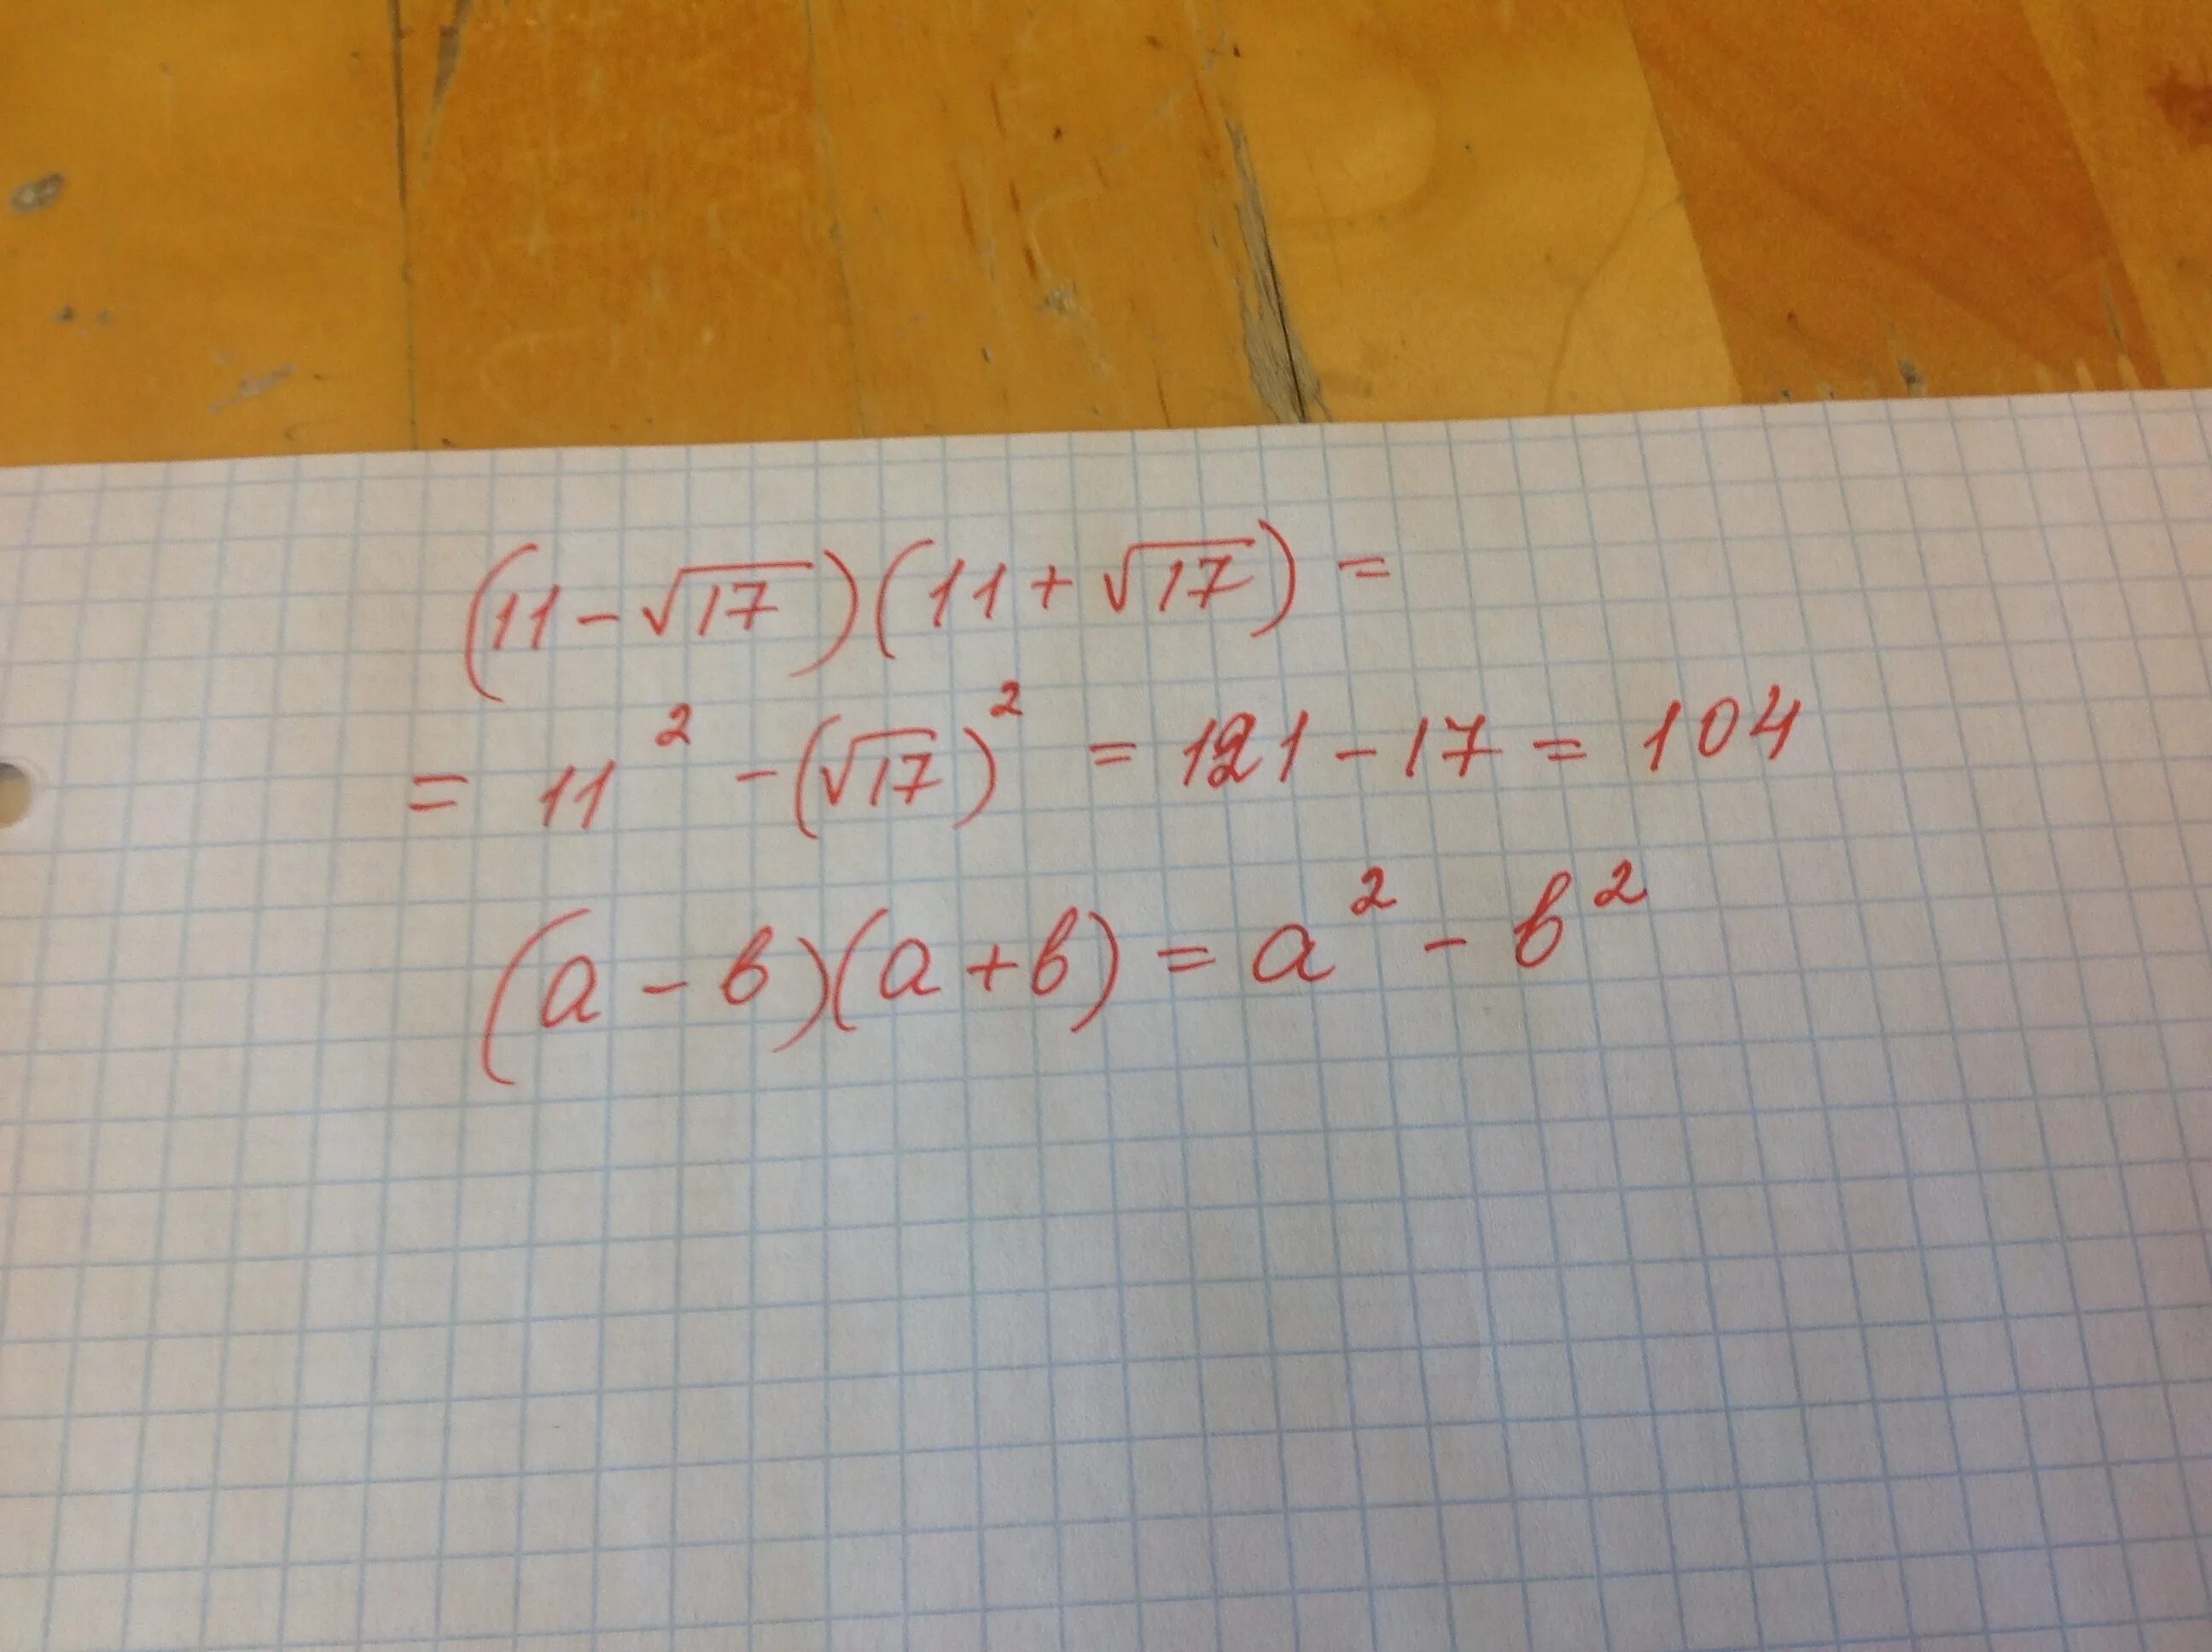 (11-√17)(11+√17)=
= 11² -(√17)² = 121-17 = 104
(a - b)(a+b) = a² - b²